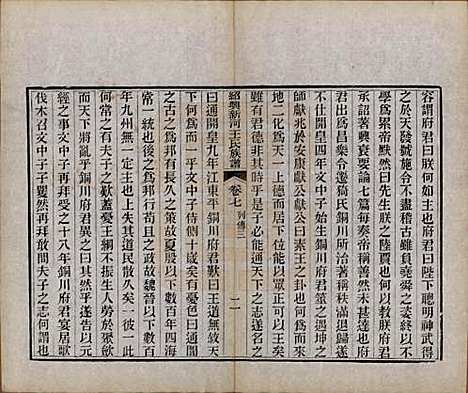 容謂府君曰朕何如主府君曰陛下聰明神武得
之於天發號施令不盡稽古雖負堯舜之姿終以不
學為累帝默然曰先生朕之陸賈也何以教朕府君
承詔著興衰要論七篇每奏帝稱善然未甚達也府
君出為昌樂令遷猗氏銅川所治著稱秩滿退歸遂
不仕開皇四年文中子始生銅川府君筮之遇坤之
師獻兆於安康獻公獻公曰素王之卦也何為而來
地二化為天一上德而居下位能以眾正可以王矣
雖有君德非其時乎是子必能通天下之志遂名之
紹興新河王氏族譜
卷七 列傳三
二
曰通開皇九年江東平銅川府君歎曰王道無敘天
下何為而一乎文中子侍側十歲矣有憂色曰通聞
之古之為邦有長久之策故夏殷以下數百年四海
常一統也後之為邦行苟且之政故魏晉以下數百
年九州無一定主也上失其道民散久矣一彼一此
何常之有夫子之歎蓋憂王綱不振生人勞於聚斂
而天下將亂乎銅川府君異之曰其然乎遂告以元
經之事文中子再拜受之十八年銅川府君宴居歌
伐木召文中子子矍然再拜敢問夫子之志何謂也